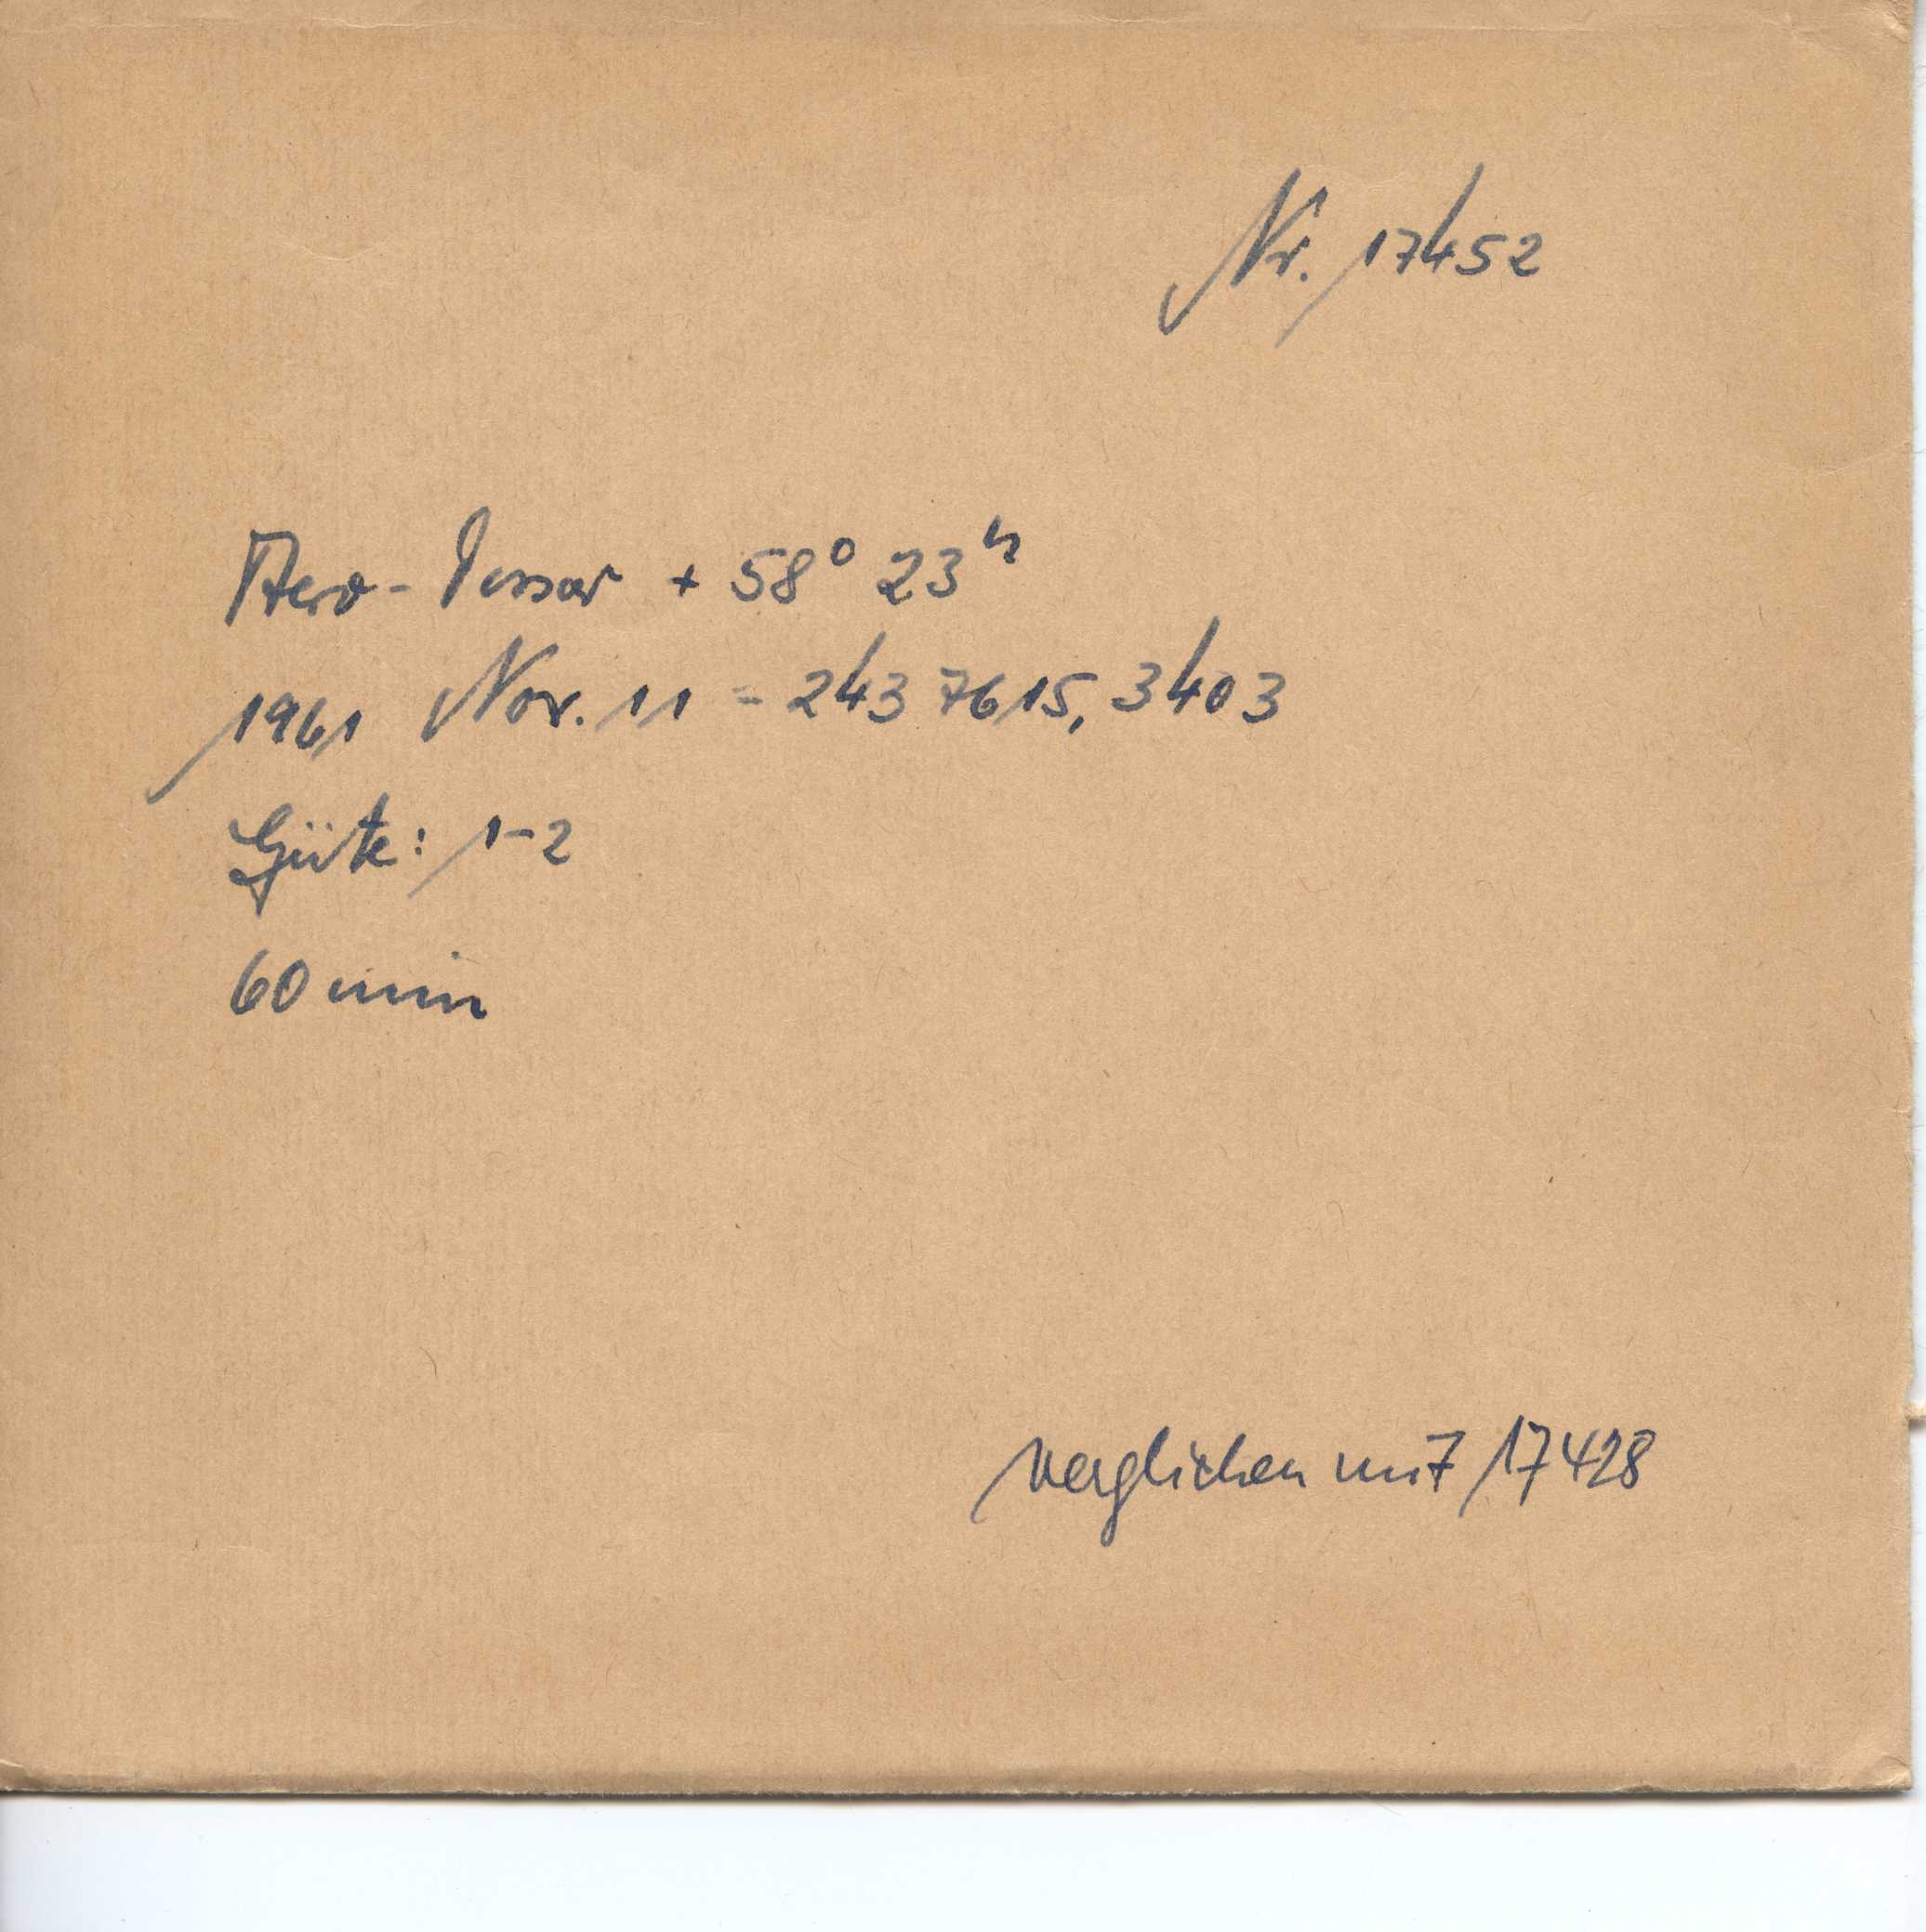 Nr. 17452
Aero-Tessar + 58° 23ʰ
1961 Nov. 11 = 243 7615,3403
Güte: 1-2
60 min
verglichen mit 17428